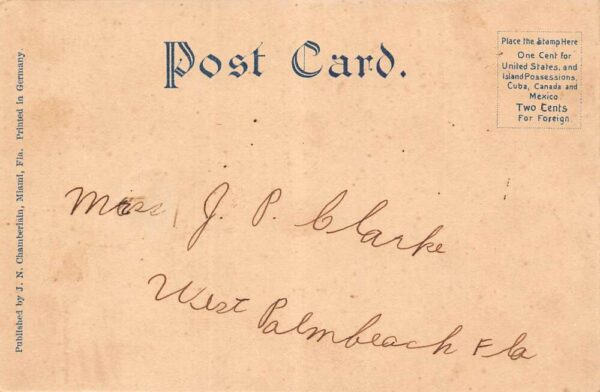 Post Card.
Place the Stamp Here
One Cent for
United States, and
Island Possessions,
Cuba, Canada and
Mexico
Two Cents
For Foreign.
J. P. Clarke
West Palmbeach Fla
Published by J. N. Chamberlain, Miami, Fla. Printed in Germany.